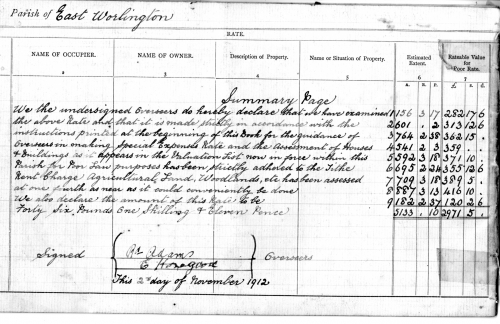 Parish of East Worlington
RATE.
NAME OF OCCUPIER. NAME OF OWNER. Description of Property. Name or Situation of Property. Estimated Extent. Rateable Value for Poor Rate.
2 3 4 5 6 7
A. R. P. £ s. d.
Summary Page
We the undersigned Overseers do hereby declare that we have examined 1 156 3 17 282 17 6
the above Rate and that it is made strictly in accordance with the 2 601 . 2 313 12 6
instructions printed at the beginning of this Book for the guidance of 3 764 2 38 362 15 .
Overseers in making Special Expenses Rate and the Assessment of Houses 4 541 2 3 359 . .
& Buildings as it appears in the Valuation List now in force within this 5 592 3 18 371 10 .
Parish for Poor Law purposes has been strictly adhered to the Tithe 6 695 2 24 355 12 6
Rent Charge Agricultural Land, Woodlands, etc has been assessed 7 709 3 18 389 5 .
at one fourth as near as it could conveniently be done 8 887 3 13 416 10 .
We also declare the amount of this Rate to be 9 182 2 37 120 2 6
Forty Six Pounds One Shilling & Eleven Pence 5133 . 10 2971 5 .
Signed Adams Overseers
This 2nd day of November 1912